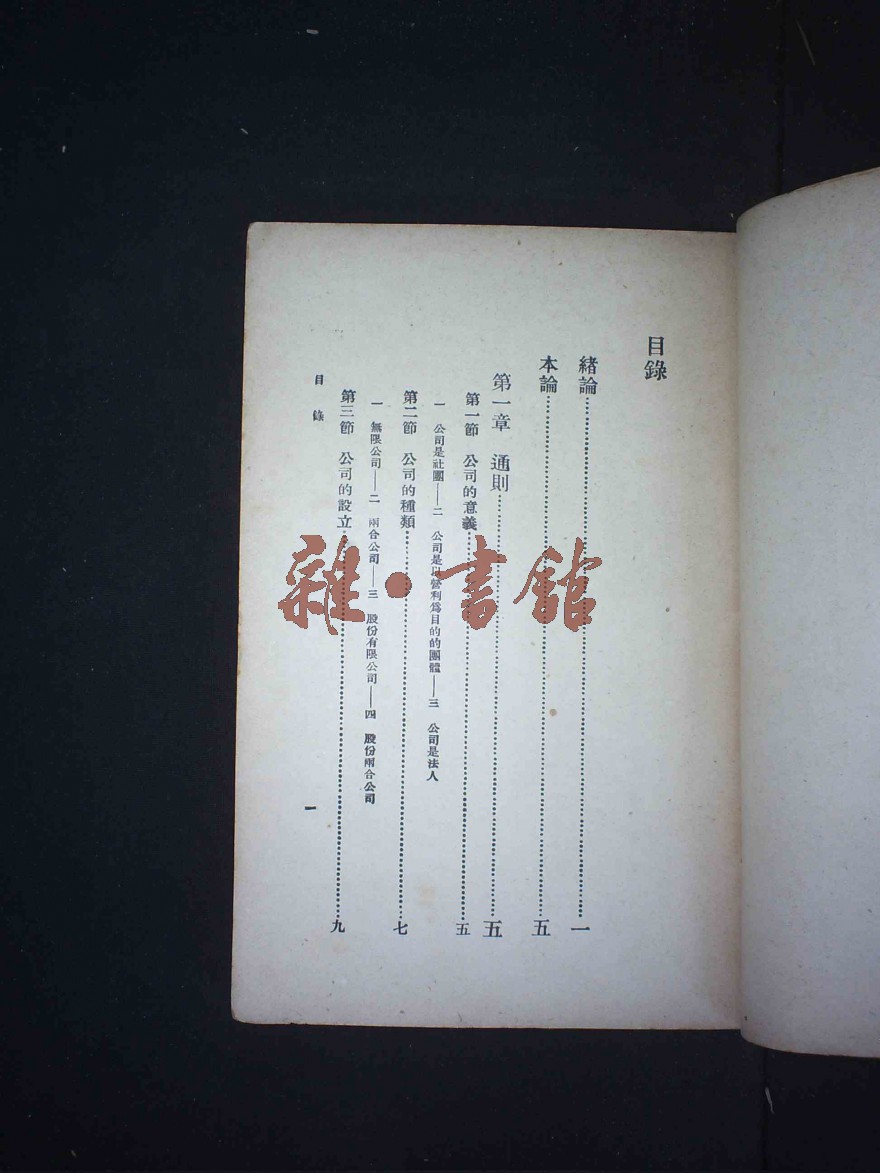 目錄
緒論……………………………………一
本論……………………………………五
第一章 通則……………………………五
第一節 公司的意義……………………五
一 公司是社團——二 公司是以營利爲目的的團體——三 公司是法人
第二節 公司的種類……………………七
一 無限公司——二 兩合公司——三 股份有限公司——四 股份兩合公司
第三節 公司的設立……………………九
目錄
一
雜·書館